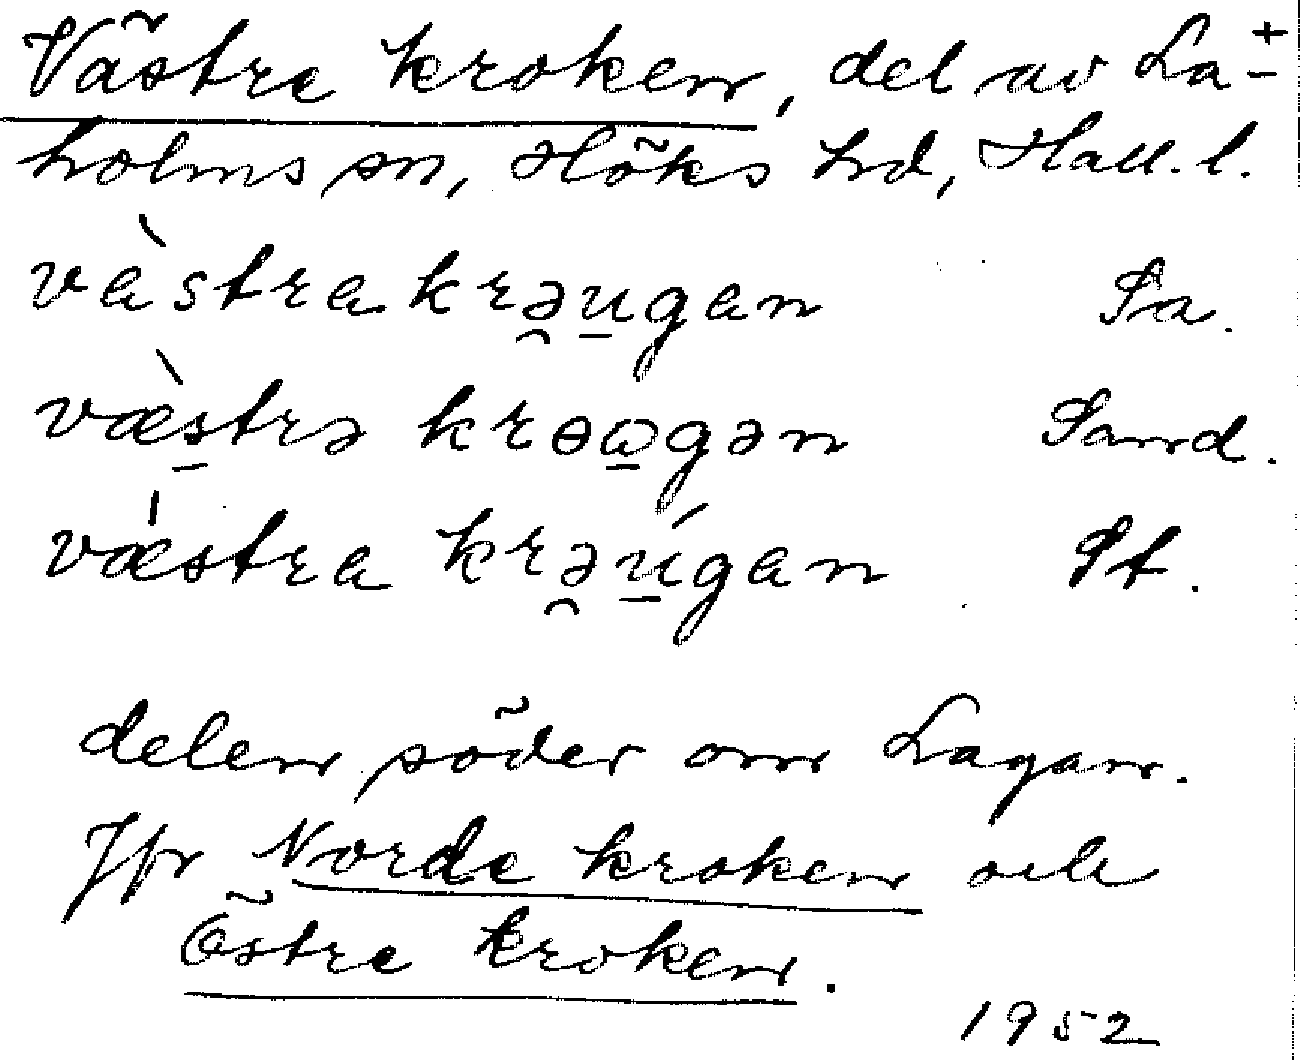 Västre kroken, del av La-
holms sn, Höks hd, Hall. l.
vàstra krə̯u̱gan Sa.
væ̀s̱trə krɵɷ̱gən Sand.
væ̍stra krə̯ú̱gan St.
delen söder om Lagan.
Jfr Norde kroken och
Östre kroken.
1952